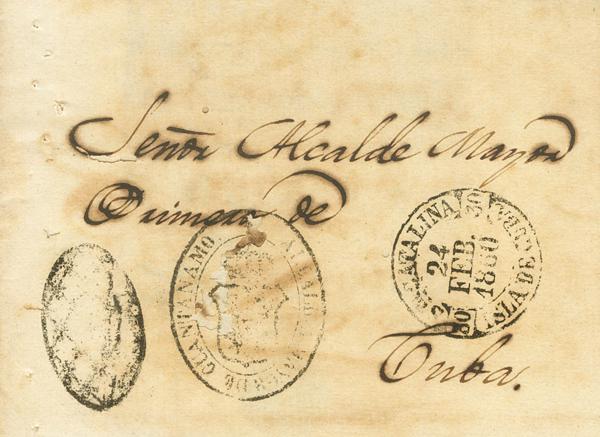 Señor Alcalde Mayor
Primero de
Cuba.
ALCALDE MAYOR DE GUANTANAMO
CATALINA
24
FEB.
1860
ISLA DE CUBA